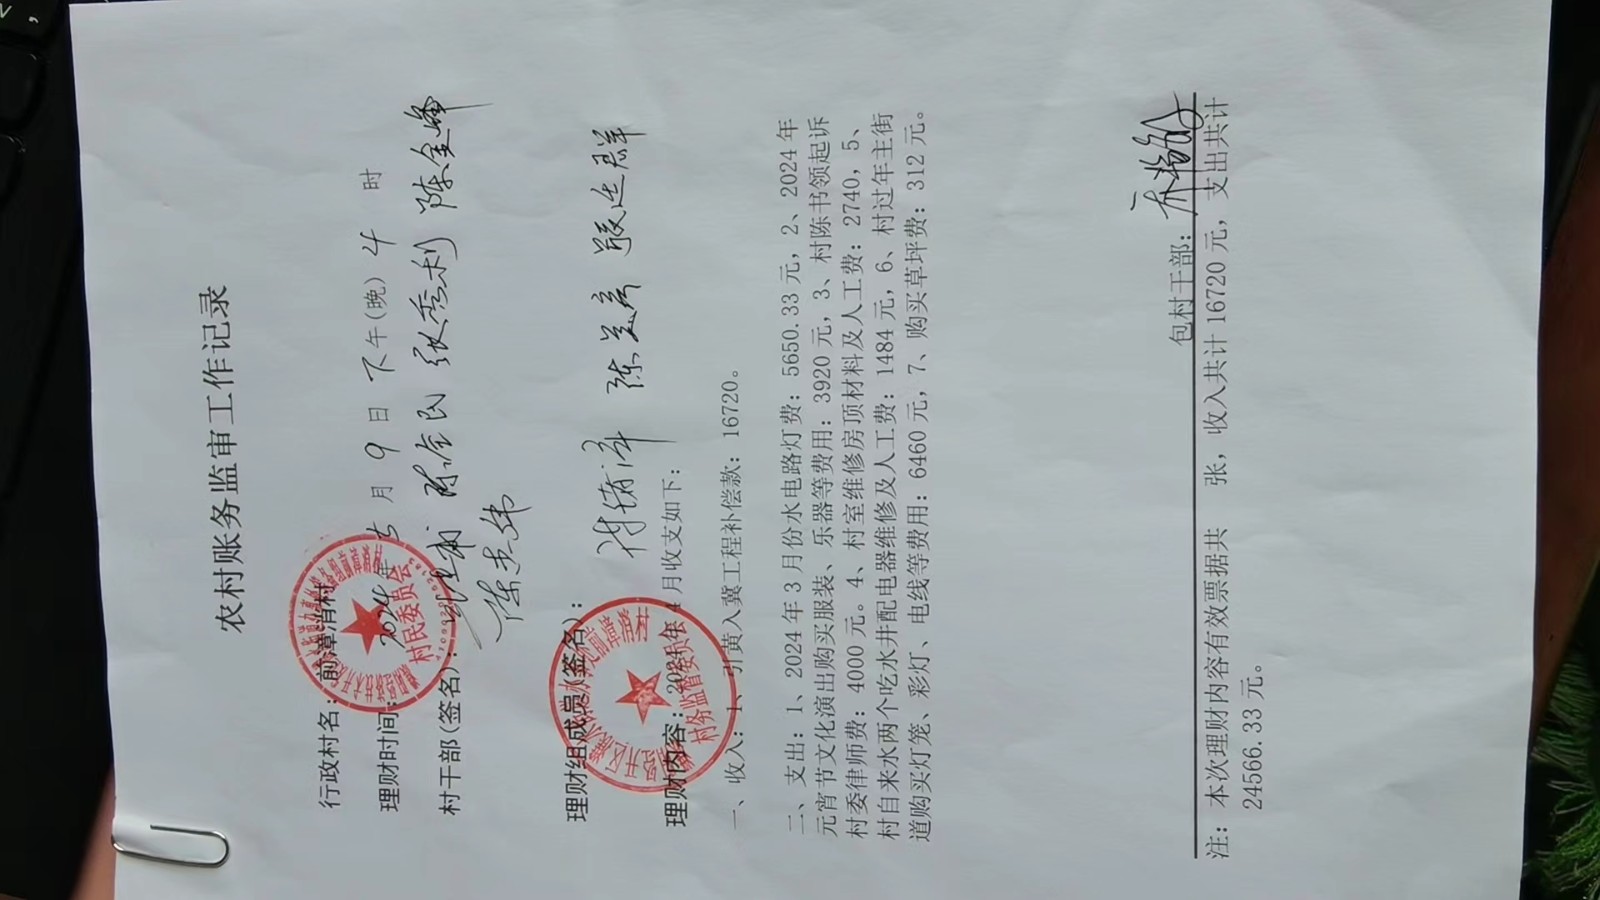 农村账务监审工作记录
行政村名：前漳消村
理财时间：2024年5月9日下午(晚)4时
村干部(签名)：陈金民 张秀利 陈金峰
陈志伟
理财组成员(签名)：
理财内容：2024年4月收支如下：
一、收入：1、引黄入冀工程补偿款：16720。
二、支出：1、2024年3月份水电路灯费：5650.33元，2、2024年
元宵节文化演出购买服装、乐器等费用：3920元，3、村陈书领起诉
村委律师费：4000元。4、村室维修房顶材料及人工费：2740，5、
村自来水两个吃水井配电器维修及人工费：1484元，6、村过年主街
道购买灯笼、彩灯、电线等费用：6460元，7、购买草坪费：312元。
包村干部：
注：本次理财内容有效票据共 张，收入共计16720元，支出共计
24566.33元。
村民委员会
村务监督委员会